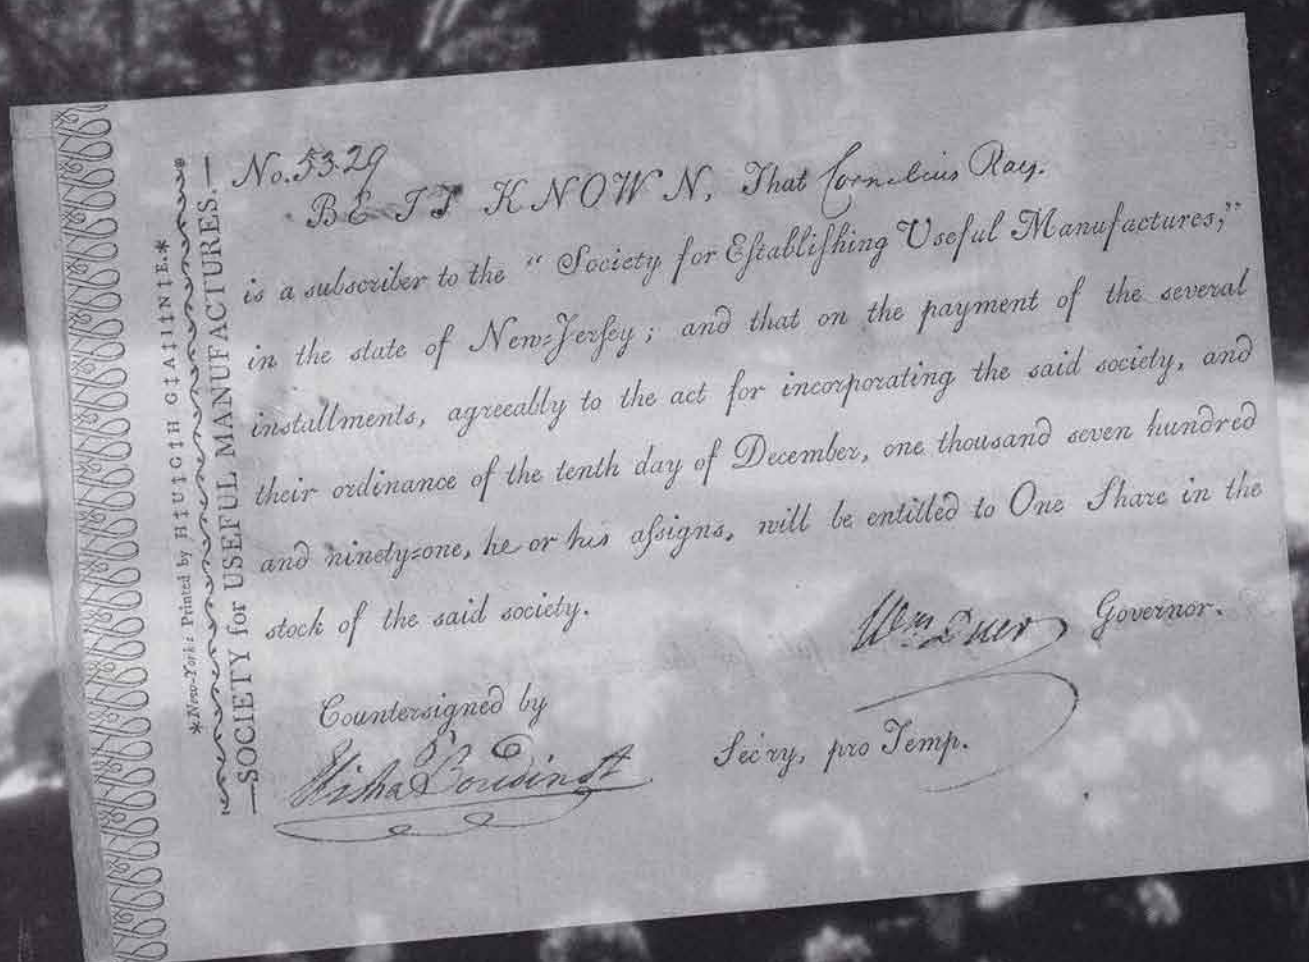 *New-York: Printed by HIUIGIH GIAIIINIE.*
—SOCIETY for USEFUL MANUFACTURES.—
No. 5329
BE IT KNOWN, That Cornelius Ray.
is a subscriber to the “Society for Eſtabliſhing Useful Manufactures,”
in the state of New=Jerſey; and that on the payment of the several
installments, agreeably to the act for incorporating the said society, and
their ordinance of the tenth day of December, one thousand seven hundred
and ninety=one, he or his aſsigns, will be entitled to One Share in the
stock of the said society.
Wm Duer Governor.
Countersigned by
Elisha Boudinot Secry, pro Temp.